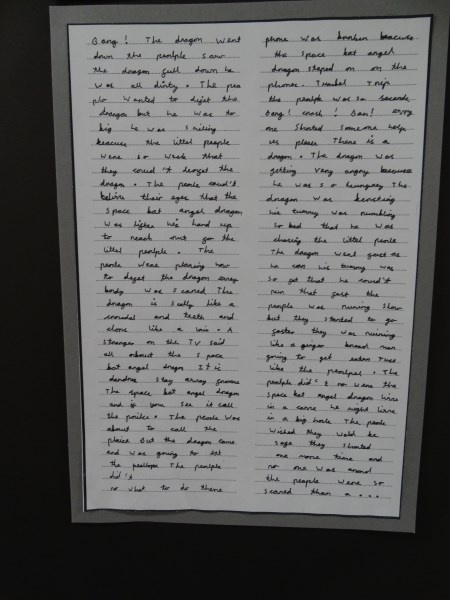 Bang! The dragon went
down the penlple saw
the dragon gell down he
was all dirty. The pea
ple wanted to dejet the
dragon but he was to
big he was smiling
beacuse the littel people
were so weak that
they coud't deget the
dragon. The peorle coud't
belive their eyes that the
space bat angel dragon
was lighter his hand up
to reach out for the
littel penlple. The
peorle were planing how
to dejet the dragon every
body was scared The
dragon is scally like a
crocodail and teeth and
clone like a loin. A
stranger on the TV said
all about the space
bat angel dragn It is
dandrose stay away gromne
The space bat angel dragon
and if you see it call
the police. The people was
about to call the
plaice But the dragon came
and was going to eat
the peallope The penlple
did't
no what to do there
phone was broken beacuse
the space bat angel
dragon staped on on the
phones. Thubal Trip
the penlple was so scared
Bang! crash! Bam! every
one shouted someone help
us please There is a
dragon. The dragon was
getting very angry because
he was so heungrey The
dragon was
his tummy was rumbling
so bad that he was
chasing the littel peorle
The dragon went gast as
he can his tummy was
so gat that he coud't
run that gast the
people was runing slow
but they started to go
gaster they was runing
like a ginger bread man
going to get eaten Then
like the penlple. The
penlple did't no were the
space bat angel dragon live
in a carve he might live
in a big hole The peorle
wished they wold be
sage they shouted
one more time and
no one was around
the people were so
scared than a ...